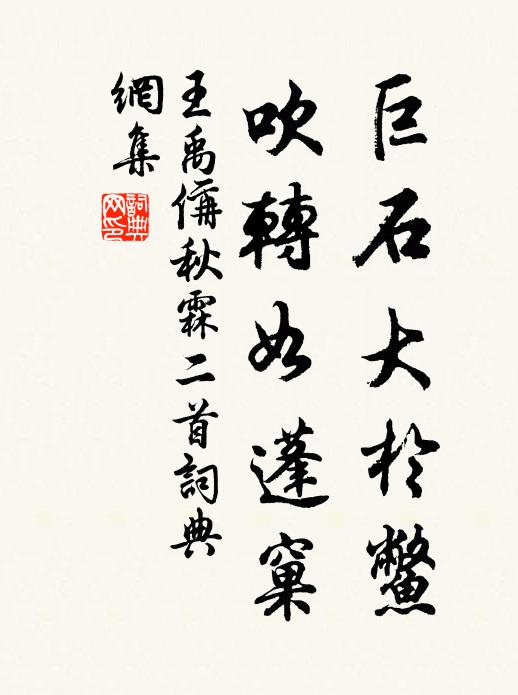 巨石大於鱉
吹轉如蓬窠
王禹偁秋霖二首詞典
網集
詞典
网印